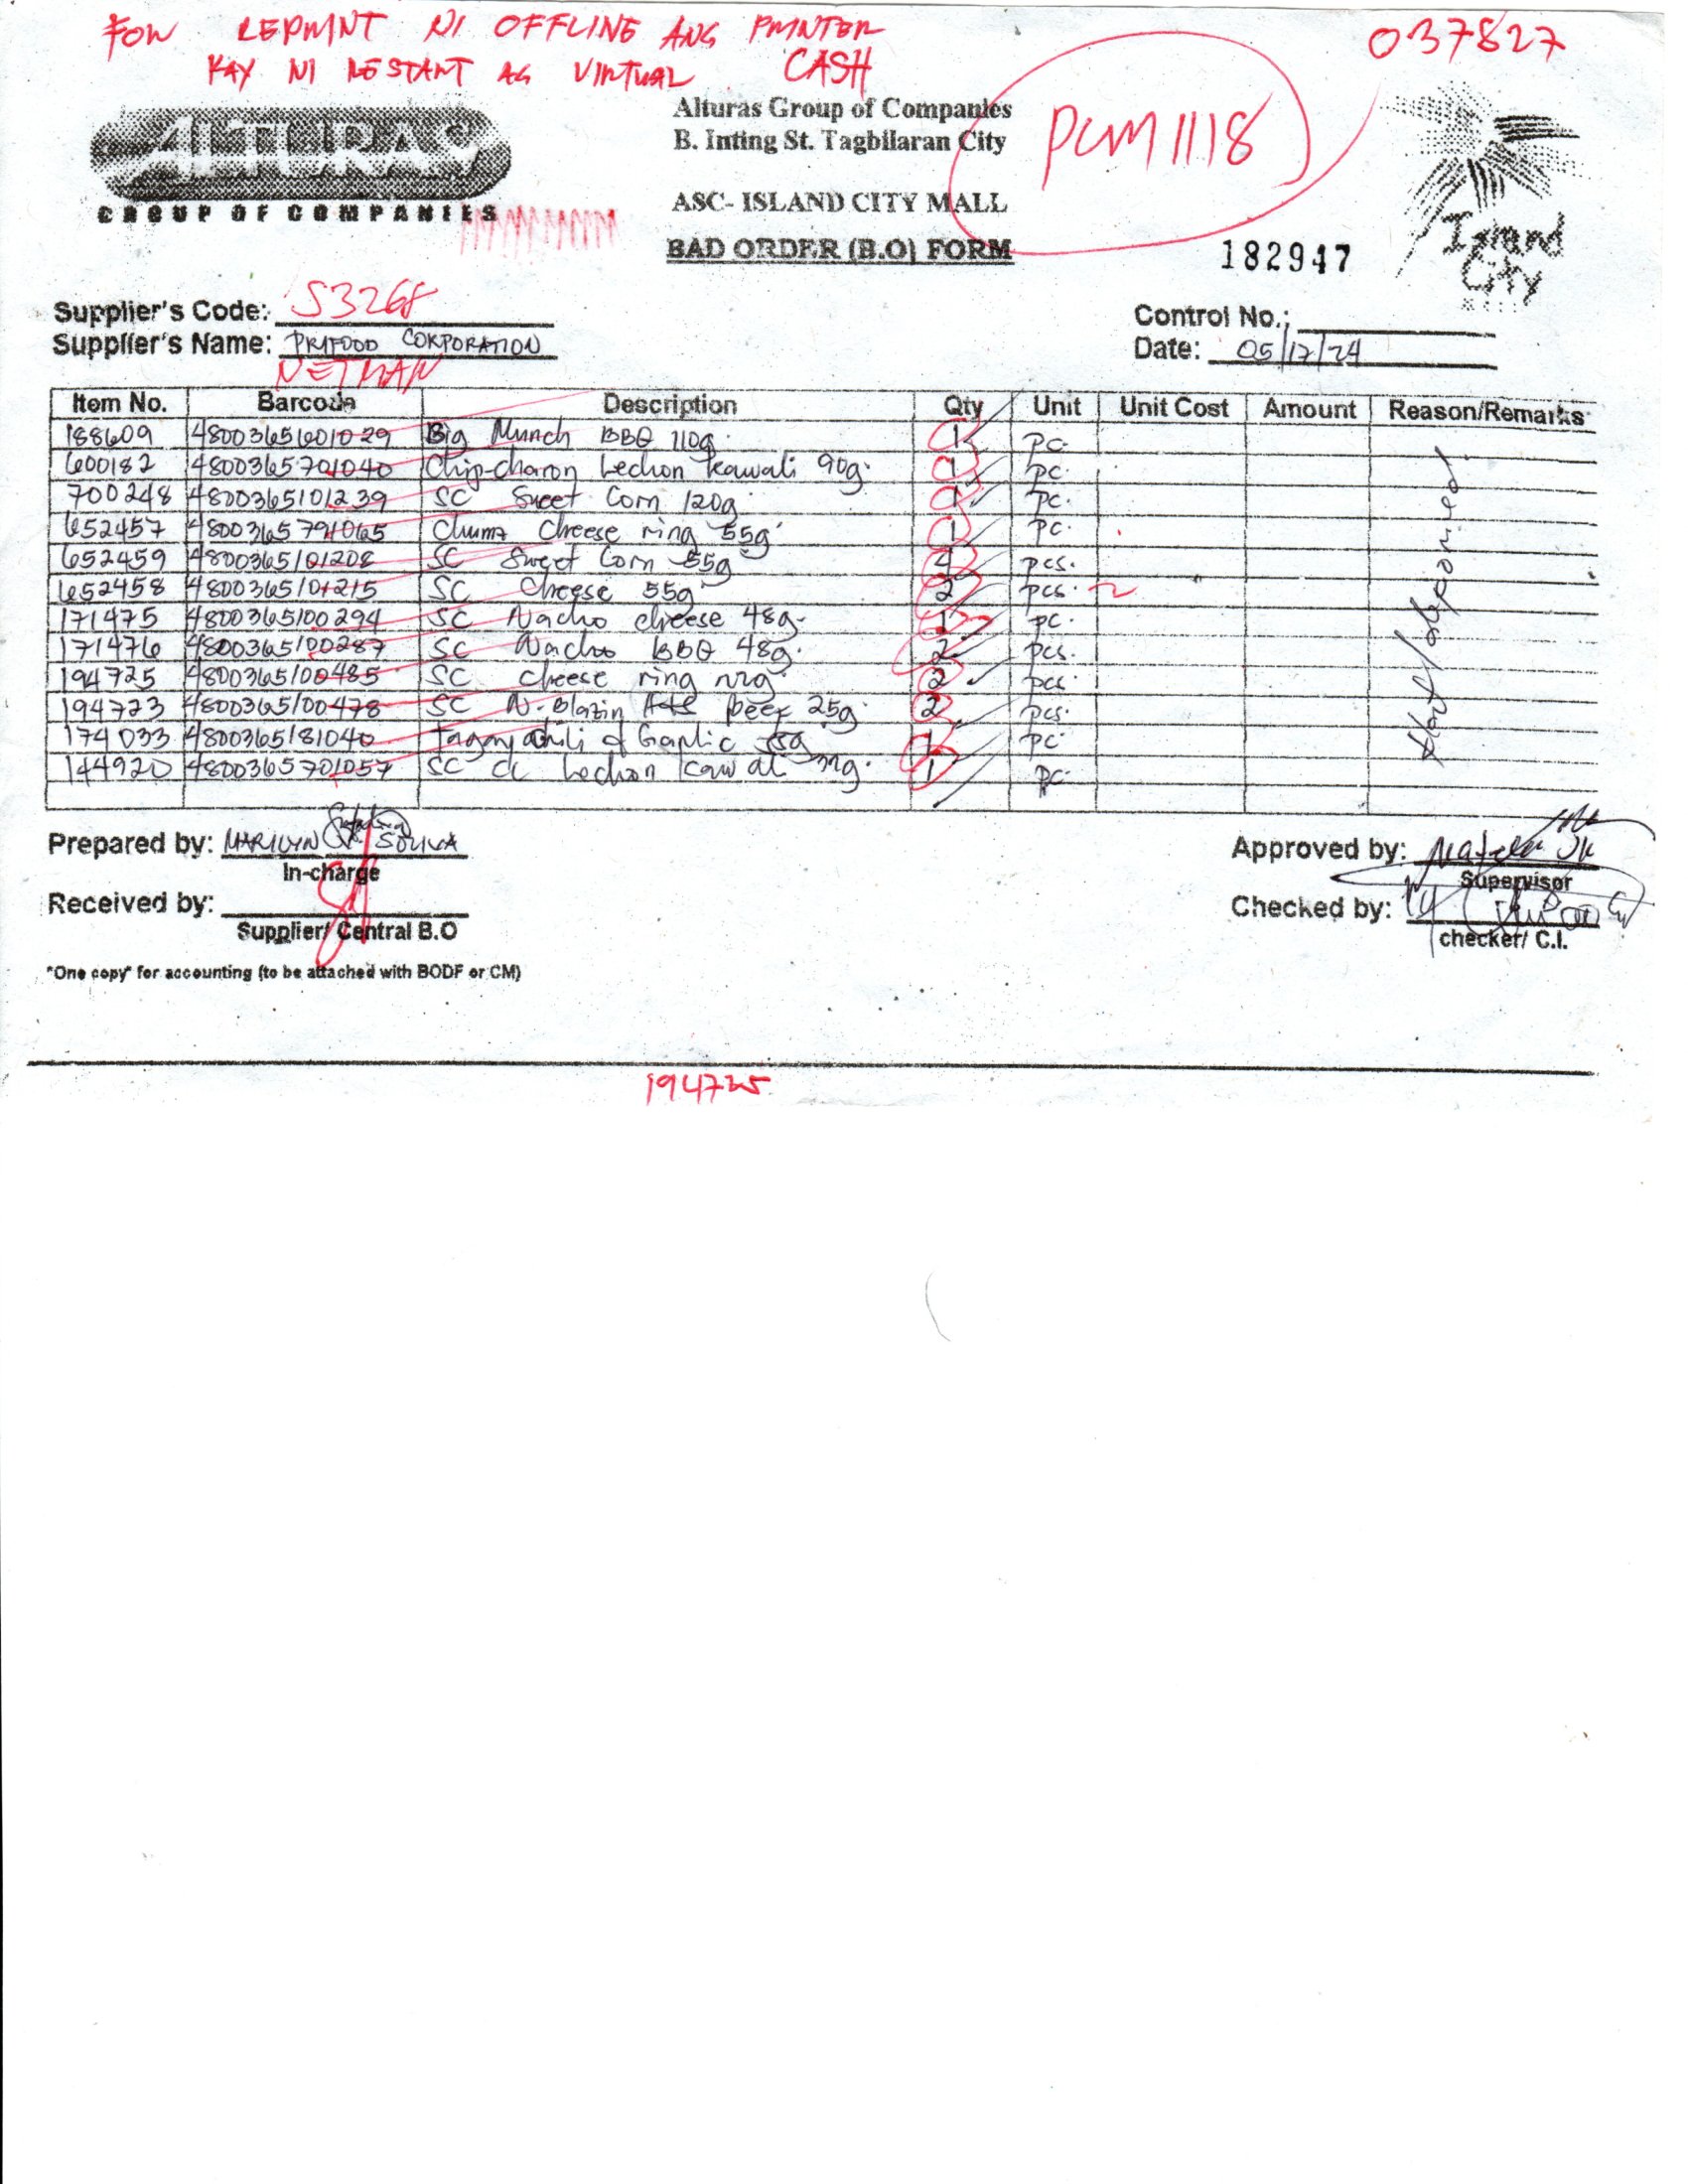 FOR REPRINT NI OFFLINE ANG PRINTER
KAY NI RESTART AG VIRTUAL CASH
037827
ALTURAS
GROUP OF COMPANIES
Alturas Group of Companies
B. Inting St. Tagbilaran City
PCM1118
ASC- ISLAND CITY MALL
BAD ORDER (B.O) FORM
182947
Island
City
Supplier's Code: S3268
Control No.:
Supplier's Name: PRIFOOD CORPORATION
Date: 05/17/24
NETMAN
Item No. Barcode Description Qty Unit Unit Cost Amount Reason/Remarks
188609 4800365601029 Big Munch BBQ 110g. 1 pc.
600182 4800365701040 Chip-charon Lechon kawali 90g. 1 pc.
700248 4800365101239 SC Sweet Corn 120g. 1 pc.
652457 4800365791065 Cheese ring 55g 1 pc.
652459 4800365101208 SC Sweet Corn 55g 4 pcs.
652458 4800365101215 SC Cheese 55g 2 pcs. 2
171475 4800365100294 SC Nacho cheese 48g. 1 pc.
171476 4800365100287 SC Nacho BBQ 48g. 2 pcs.
194725 4800365100485 SC cheese ring 22g. 2 pcs.
194723 4800365100478 SC N-Blazin Hot beef 25g. 2 pcs.
174033 4800365181040 chili & Garlic 1 pc
144920 4800365701057 SC CC Lechon kawali 1 pc.
Prepared by: MARILYN SOLIVA
In-charge
Approved by:
Supervisor
Received by:
Supplier/ Central B.O
Checked by:
checker/ C.I.
"One copy" for accounting (to be attached with BODF or CM)
194725